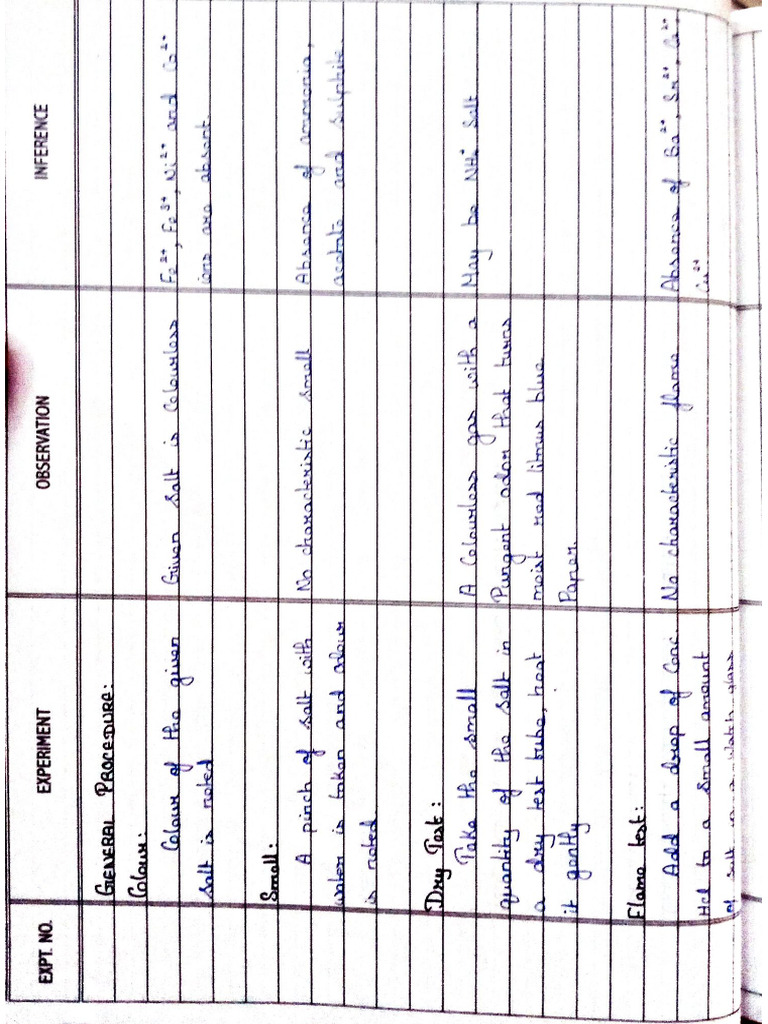 EXPT. NO. EXPERIMENT OBSERVATION INFERENCE
GENERAL PROCEDURE:
Colour:
Colour of the given Given salt is Colourless Fe²⁺, Fe³⁺, Ni²⁺ and Co²⁺
salt is noted ions are absent.
Smell:
A pinch of salt with No characteristic smell Absence of ammonia,
water is taken and odour acetate and sulphite.
is noted.
Dry Test:
Take the small A Colourless gas with a May be NH₄⁺ Salt
quantity of the salt in Pungent odor that turns
a dry test tube, heat moist red litmus blue
it gently Paper.
Flame test:
Add a drop of Conc. No characteristic flame Absence of Ba²⁺, Sr²⁺, Ca²⁺,
Hcl to a small amount Cu²⁺
of salt in a watch glass